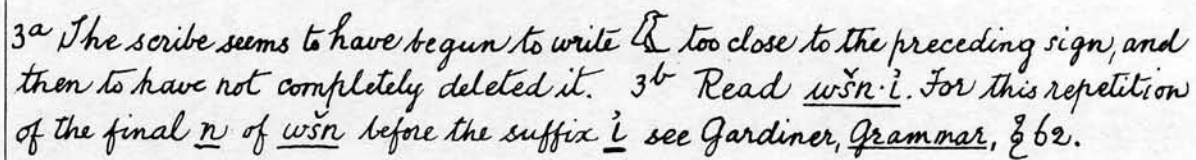 3ᵃ The scribe seems to have begun to write 𓅱 too close to the preceding sign, and
then to have not completely deleted it. 3ᵇ Read wšn·ỉ. For this repetition
of the final n of wšn before the suffix ỉ see Gardiner, Grammar, § 62.